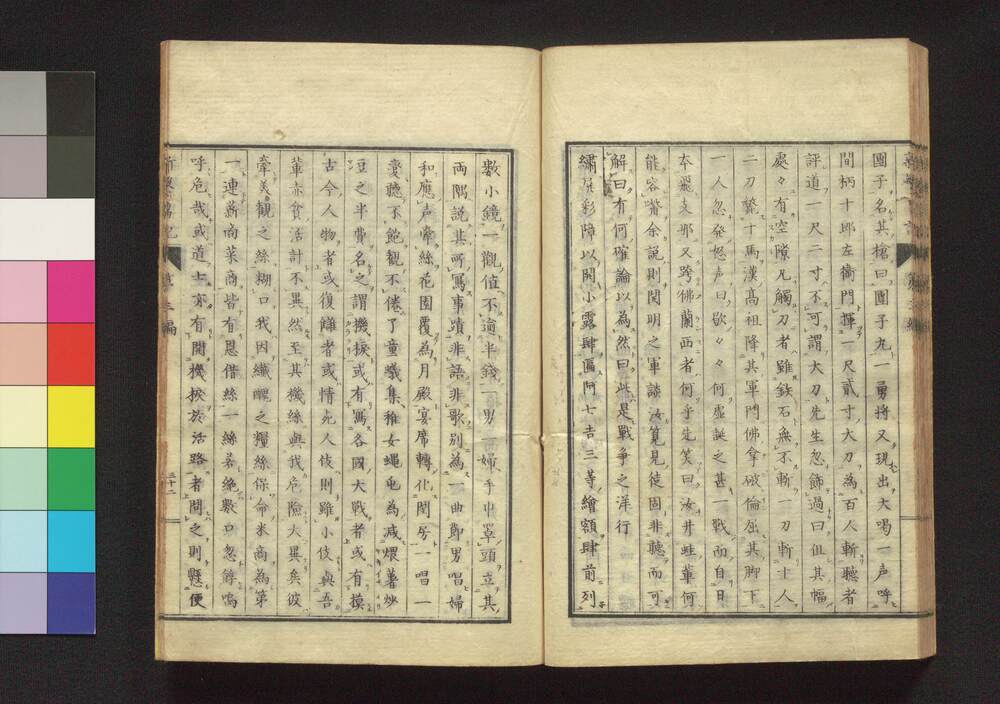 團子名其槍曰團子九一勇將又現出大喝一声呼
間柄十郎左衛門揮一尺貳寸大刀為百人斬聽者
評道一尺二寸不可謂大刀先生忽飾過曰但其幅
處々有空隙凡觸刀者雖鉄石無不斬一刀斬十人
二刀斃十馬漢髙祖降其軍門佛拿破倫屈其脚下
一人忽発怒声曰歇々々何虚誕之甚一戰而自日
本飛支那又跨佛蘭西者何乎先笑曰汝井蛙輩何
能容喙余説則関明之軍談汝寛見使固非聽而可
解曰有何確論以為然曰此是戰争之洋行
繡展彩障以開小露肆區阿七吉三等繪額肆前列
數小鏡一觀值不過半錢一男一婦手巾罩頭立其
兩隅説其所寫事蹟非語非歌別為一曲節男唱婦
和應声牽絲花園覆為月殿宴席轉化閨房一唱一
憂聽不飽觀不倦了童蟻集稚女蠅屯為减煨薯炒
豆之半費名之謂機捩或有寫各國大戰者或有摸
古今人物者或復讎者或情死人伎則雖小伎與吾
輩赤貧活計不異然至其機絲與我危險大異矣彼
牽美觀之絲糊口我因纖醒之糧絲保命米商為第
一連薪商菜商皆有恩借絲一絲若絶數口忽餑嗚
呼危哉或道士亦有開機捩於活路者聞之則懸便
三十二